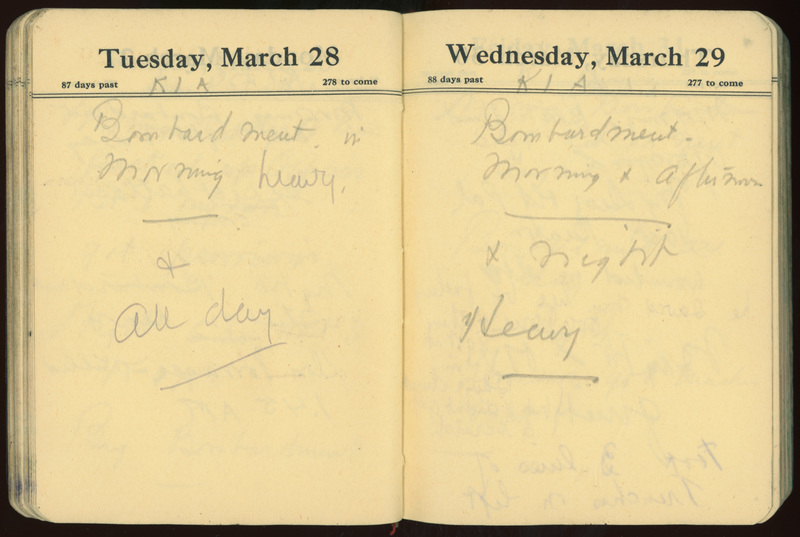 Tuesday, March 28
87 days past 278 to come
K I A
Bombardment in
Morning heavy.
&
All day
Wednesday, March 29
88 days past 277 to come
K I A
Bombardment.
Morning & Afternoon
& night
Heavy